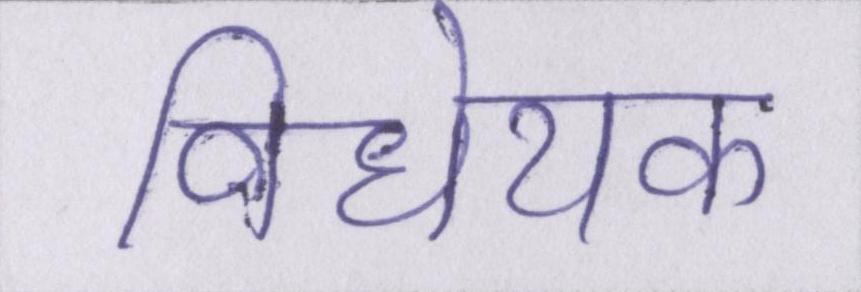 विधेयक